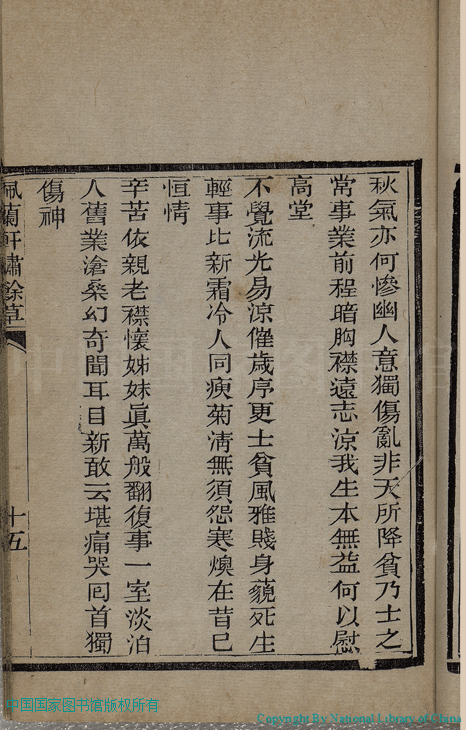 秋氣亦何慘幽人意獨傷亂非天所降貧乃士之
常事業前程暗胸襟遠志涼我生本無益何以慰
高堂
不覺流光易涼催歲序更士貧風雅賤身藐死生
輕事比新霜冷人同瘐菊淸無須怨寒燠在昔已
恒情
辛苦依親老襟懷姊妹眞萬般翻復事一室淡泊
人舊業滄桑幻奇聞耳目新敢云堪痛哭囘首獨
傷神
佩蘭軒繡餘草
十五
中国国家图书馆版权所有
Copyright By National Library of China